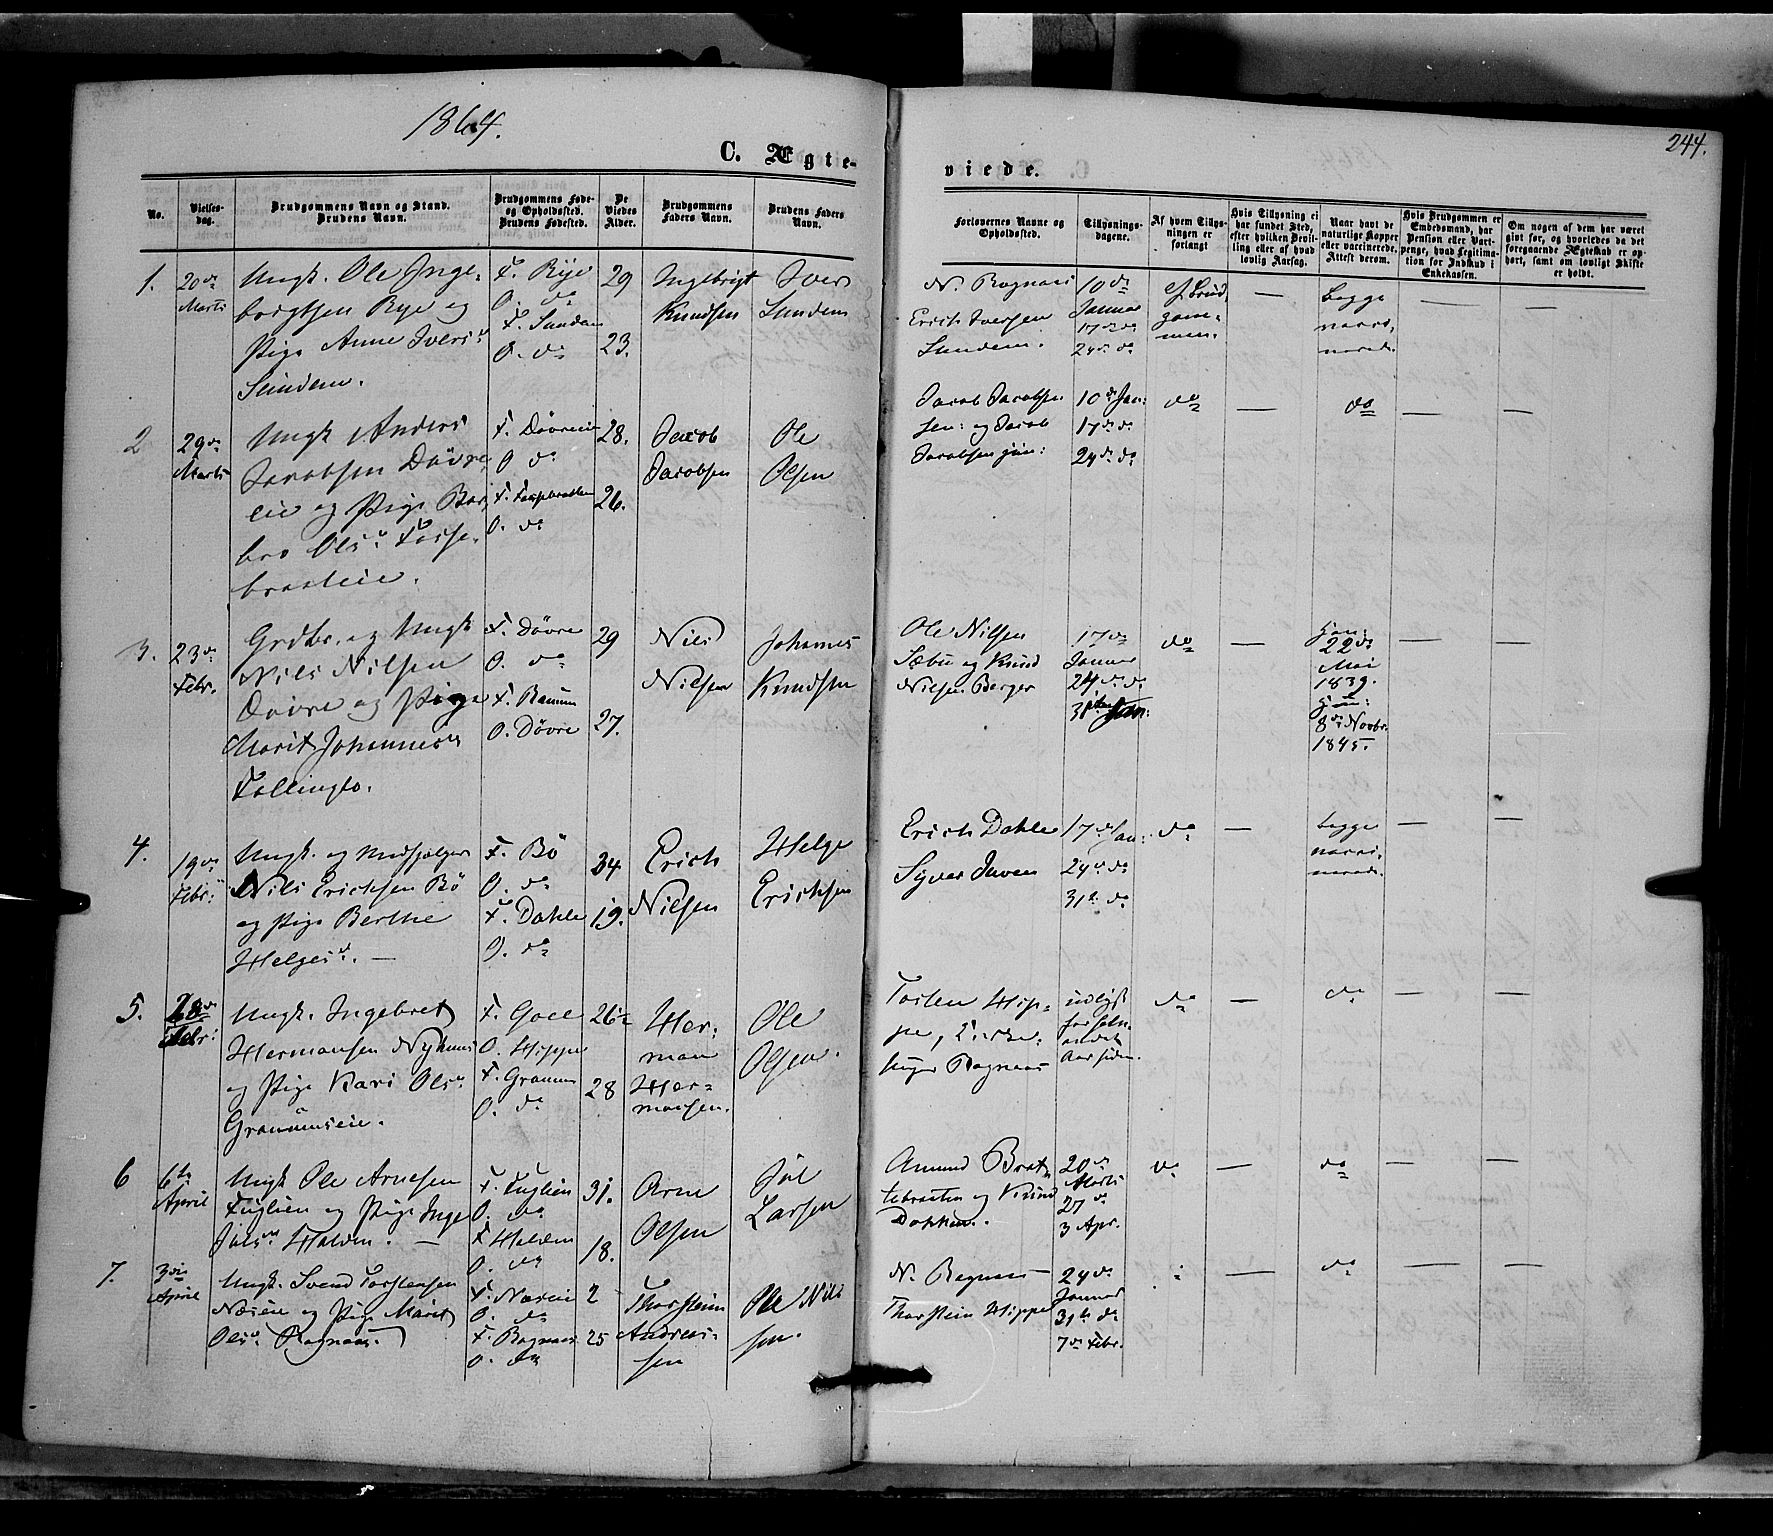 1864.
244.
C. Ægte-
viede.
No.
Vielses-
dag.
Brudgommens Navn og Stand.
Brudens Navn.
Brudgommens Føde-
og Opholdsted.
Brudens Fødested.
De
Viedes
Alder.
Brudgommens
Faders Navn.
Brudens Faders
Navn.
Forlovernes Navne og
Opholdsted.
Tillysnings-
dagene.
Af hvem Tillys-
ningen er
forlangt
Hvis Tillysning ei
har fundet Sted,
efter hvilken Bevil-
ling eller af hvad
lovlig Aarsag.
Naar havt de
naturlige Kopper
eller vaccinerede.
Attest derom.
Hvis Brudgommen er
Embedsmand, har
Pension eller Vart-
penge, hvad Legitima-
tion for Indskud i
Enkekassen.
Om nogen af dem har været
givt før, og hvorledes da det
foregaaende Ægteskab er op-
hørt, samt om lovligt Skifte
er holdt.
1.
20de
Marts
Ungk. Ole Inge-
borgtsen Rye og
Pige Anne Iversd.
Sundem.
F. Rye
O. do
F. Sundem
O. do
29
23.
Ingebrigt
Knudsen
Iver
Sundem
N. Rognaas
Erich Iversen
Sundem.
10de
Januar
17de do
24de do
af Brud
gom-
men.
—
begge
vacci-
nered.
—
—
2
29de
Marts
Ungk Anders
Jacobsen Døvre
eie og Pige Bar
bro Olsd. Fosse-
braateie.
F. Døvreeie
O. do
F. Fossebraaten
O. do
28.
26.
Jacob
Jacobsen
Ole
Olsen
Jacob Jacobsen
sen: og Jacob
Jacobsen jun:
10de Jan:
17de do
24de do
do
—
do
—
—
3.
23de
Febr.
Grdbr. og Ungk
Nils Nilsen
Døvre og Pige
Marit Johannesd.
Follinglo.
F. Døvre
O. do
F. Ramum
O. Døvre
29
27.
Nils
Nilsen
Johannes
Knudsen
Ole Nilsen
Sæbu og Knud
Nilsen Berger
17de
Januar
24de do
31te Jan:
do
—
22de
Mai
1839.
8de Novbr.
1845.
—
—
4.
19de
Febr:
Ungk. og
Nils Erichsen Bö
og Pige Berthe
Helgesd. —
F. Bö
O. do
F. Dahle
O. do
34
19.
Erich
Nilsen
Helge
Erichsen
Erich Dahle
Syver Juven
17de Jan:
24de do
31te do
do
—
begge
vacci-
nered.
—
—
5.
28de
Febr:
Ungk. Ingebret
Hermansen Nyhuus
og Pige Kari Olsd.
Granumseie.
F. Goee
O. Hippe
F. Granum
O. do
26½
28
Her-
man
Her-
mansen.
Ole
Olsen.
Tosten Hip-
pe, Kirke-
Rognaas
udlyst
Aar siden.
do
—
do
—
—
6
6te
April
Ungk Ole Arnesen
Fuglien og Pige Inge
Jolsd. Halden. —
F. Fuglien
O. do
F Halden
O. do
31.
18.
Arne
Olsen
Jøl
Larsen
Amund Brat-
tebraaten og Knud
Dokken.
20de
Marts
27de
3 Apr.
do
—
do
—
—
7.
3die
April
Ungk. Svend Torstensen
Næseie og Pige Marit
Olsd. Rognaas.
F. Næseie
O. do
F. Rognaas
O. do
2
25
Thorstein
Andreas-
sen
Ole Nils
sen.
N. Rognaas
Thorstein Hippe
24de
Januar
31te do
7de Febr.
—
do
—
—